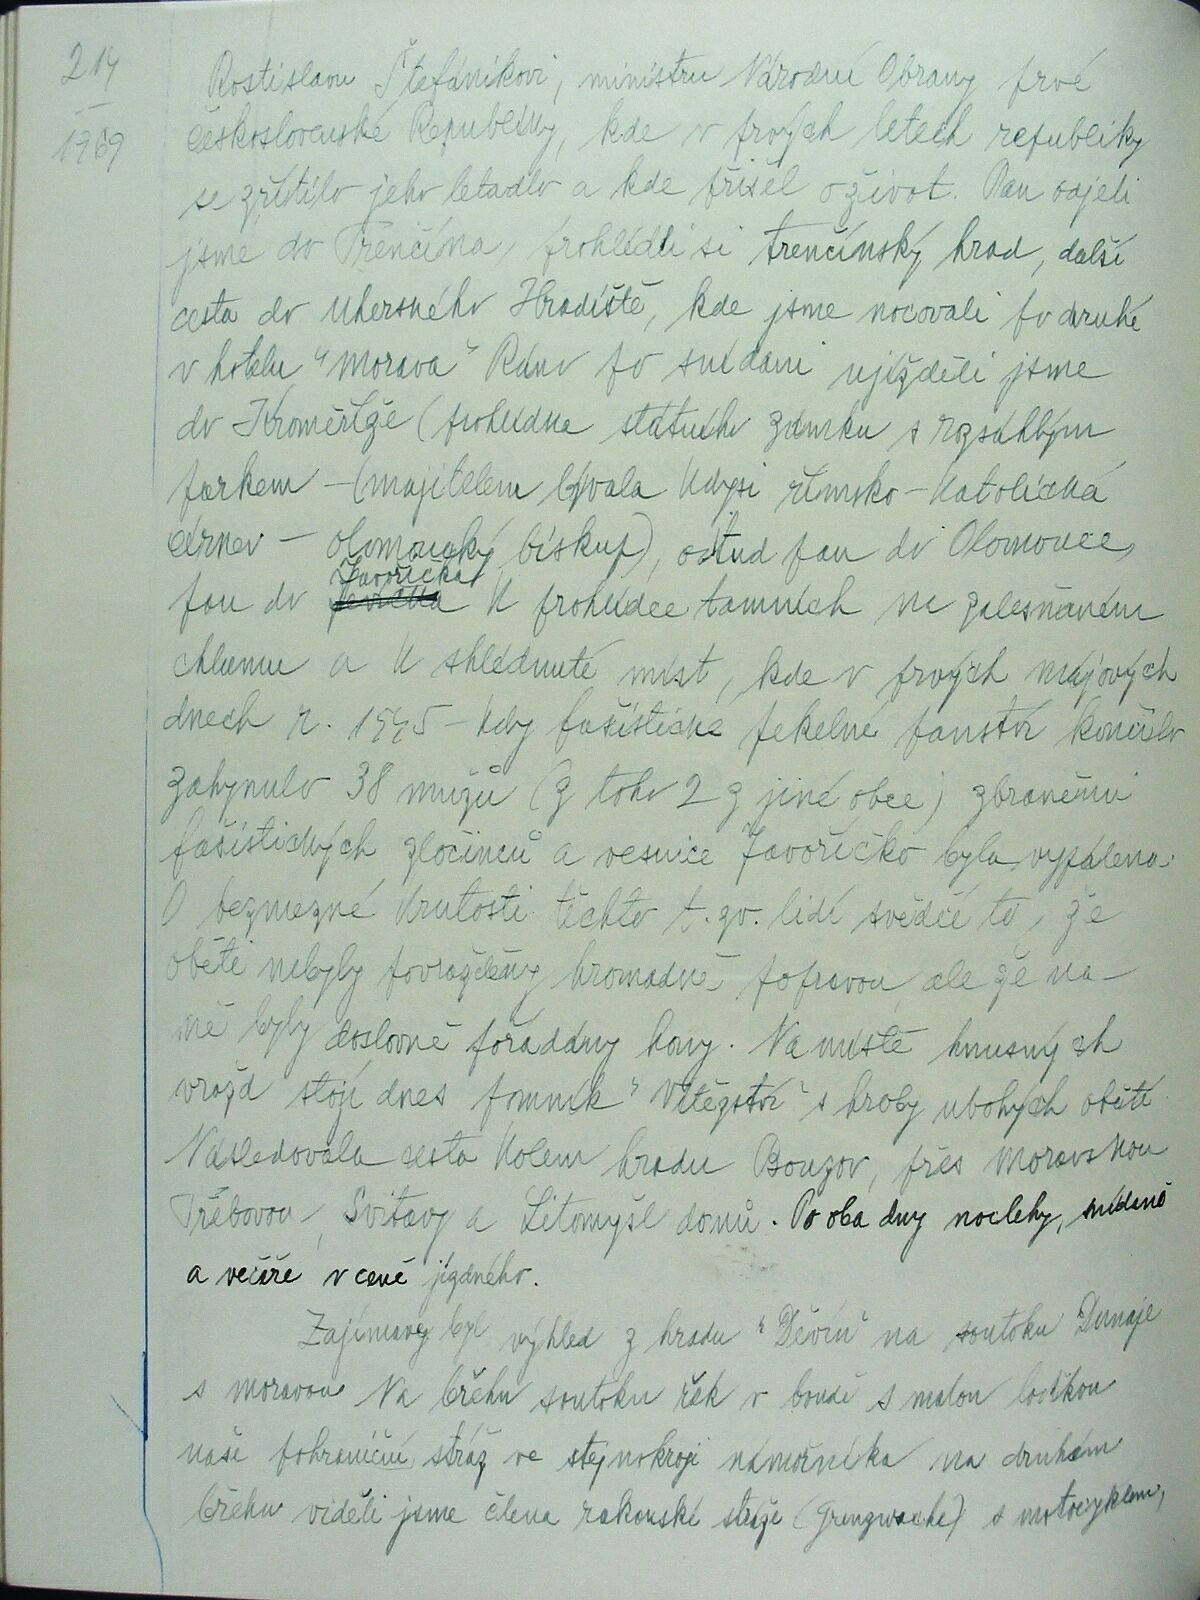 214
1969
Rostislavu Štefánikovi, ministru Národní Obrany prvé
československé Republiky, kde v prvých letech republiky
se zřítilo jeho letadlo a kde přišel o život. Pan odjeli
jsme do Trenčína, prohlédli si trenčínský hrad, další
cesta do Uherského Hradiště, kde jsme nocovali po druhé
v hotelu "Morava" Ráno po snídani ujížděli jsme
do Kroměříže (prohlídka státního zámku s rozsáhlým
parkem - (majitelem bývala kdysi římsko-katolická
církev - olomoucký biskup), odtud pan do Olomouce,
pan do Javoříčka k prohlídce tamních na zalesněném
chlumu a k shlédnutí míst, kde v prvých májových
dnech r. 1945 - kdy fašistické pekelné panství končilo
zahynulo 38 mužů (z toho 2 z jiné obce) zbraněmi
fašistických zločinců a vesnice Javoříčko byla vypálena.
O bezmezné krutosti těchto t. zv. lidí svědčí to, že
oběti nebyly povražděny hromadně popravou, ale že na
ně byly doslovně pořádány hony. Na místě hnusných
vražd stojí dnes pomník "Vítězství" s hroby ubohých obětí.
Následovala cesta kolem hradu Bouzov, přes Moravskou
Třebovou, Svitavy a Litomyšl domů. Po oba dny noclehy, snídaně
a večeře v ceně jízdného.
Zajímavý byl výhled z hradu "Děvín" na soutoku Dunaje
s Moravou Na břehu soutoku řek v boudě s malou lodikou
naše pohraniční stráž ve stejnokroji námořníka na druhém
břehu viděli jsme člena rakouské stráže (Grenzwache) s motocyklem,